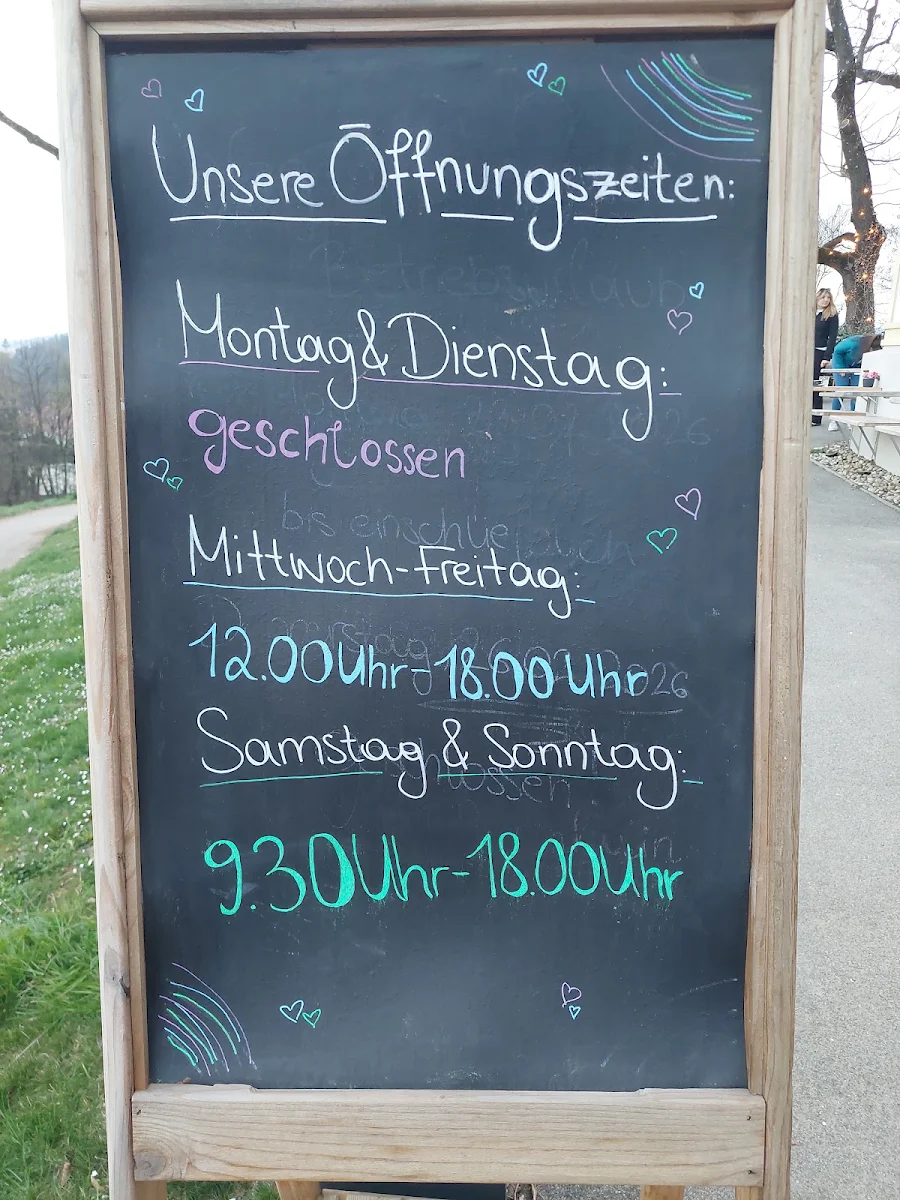 Unsere Öffnungszeiten:
Montag & Dienstag:
geschlossen
Mittwoch-Freitag:
12.00 Uhr-18.00 Uhr
Samstag & Sonntag:
9.30 Uhr-18.00 Uhr